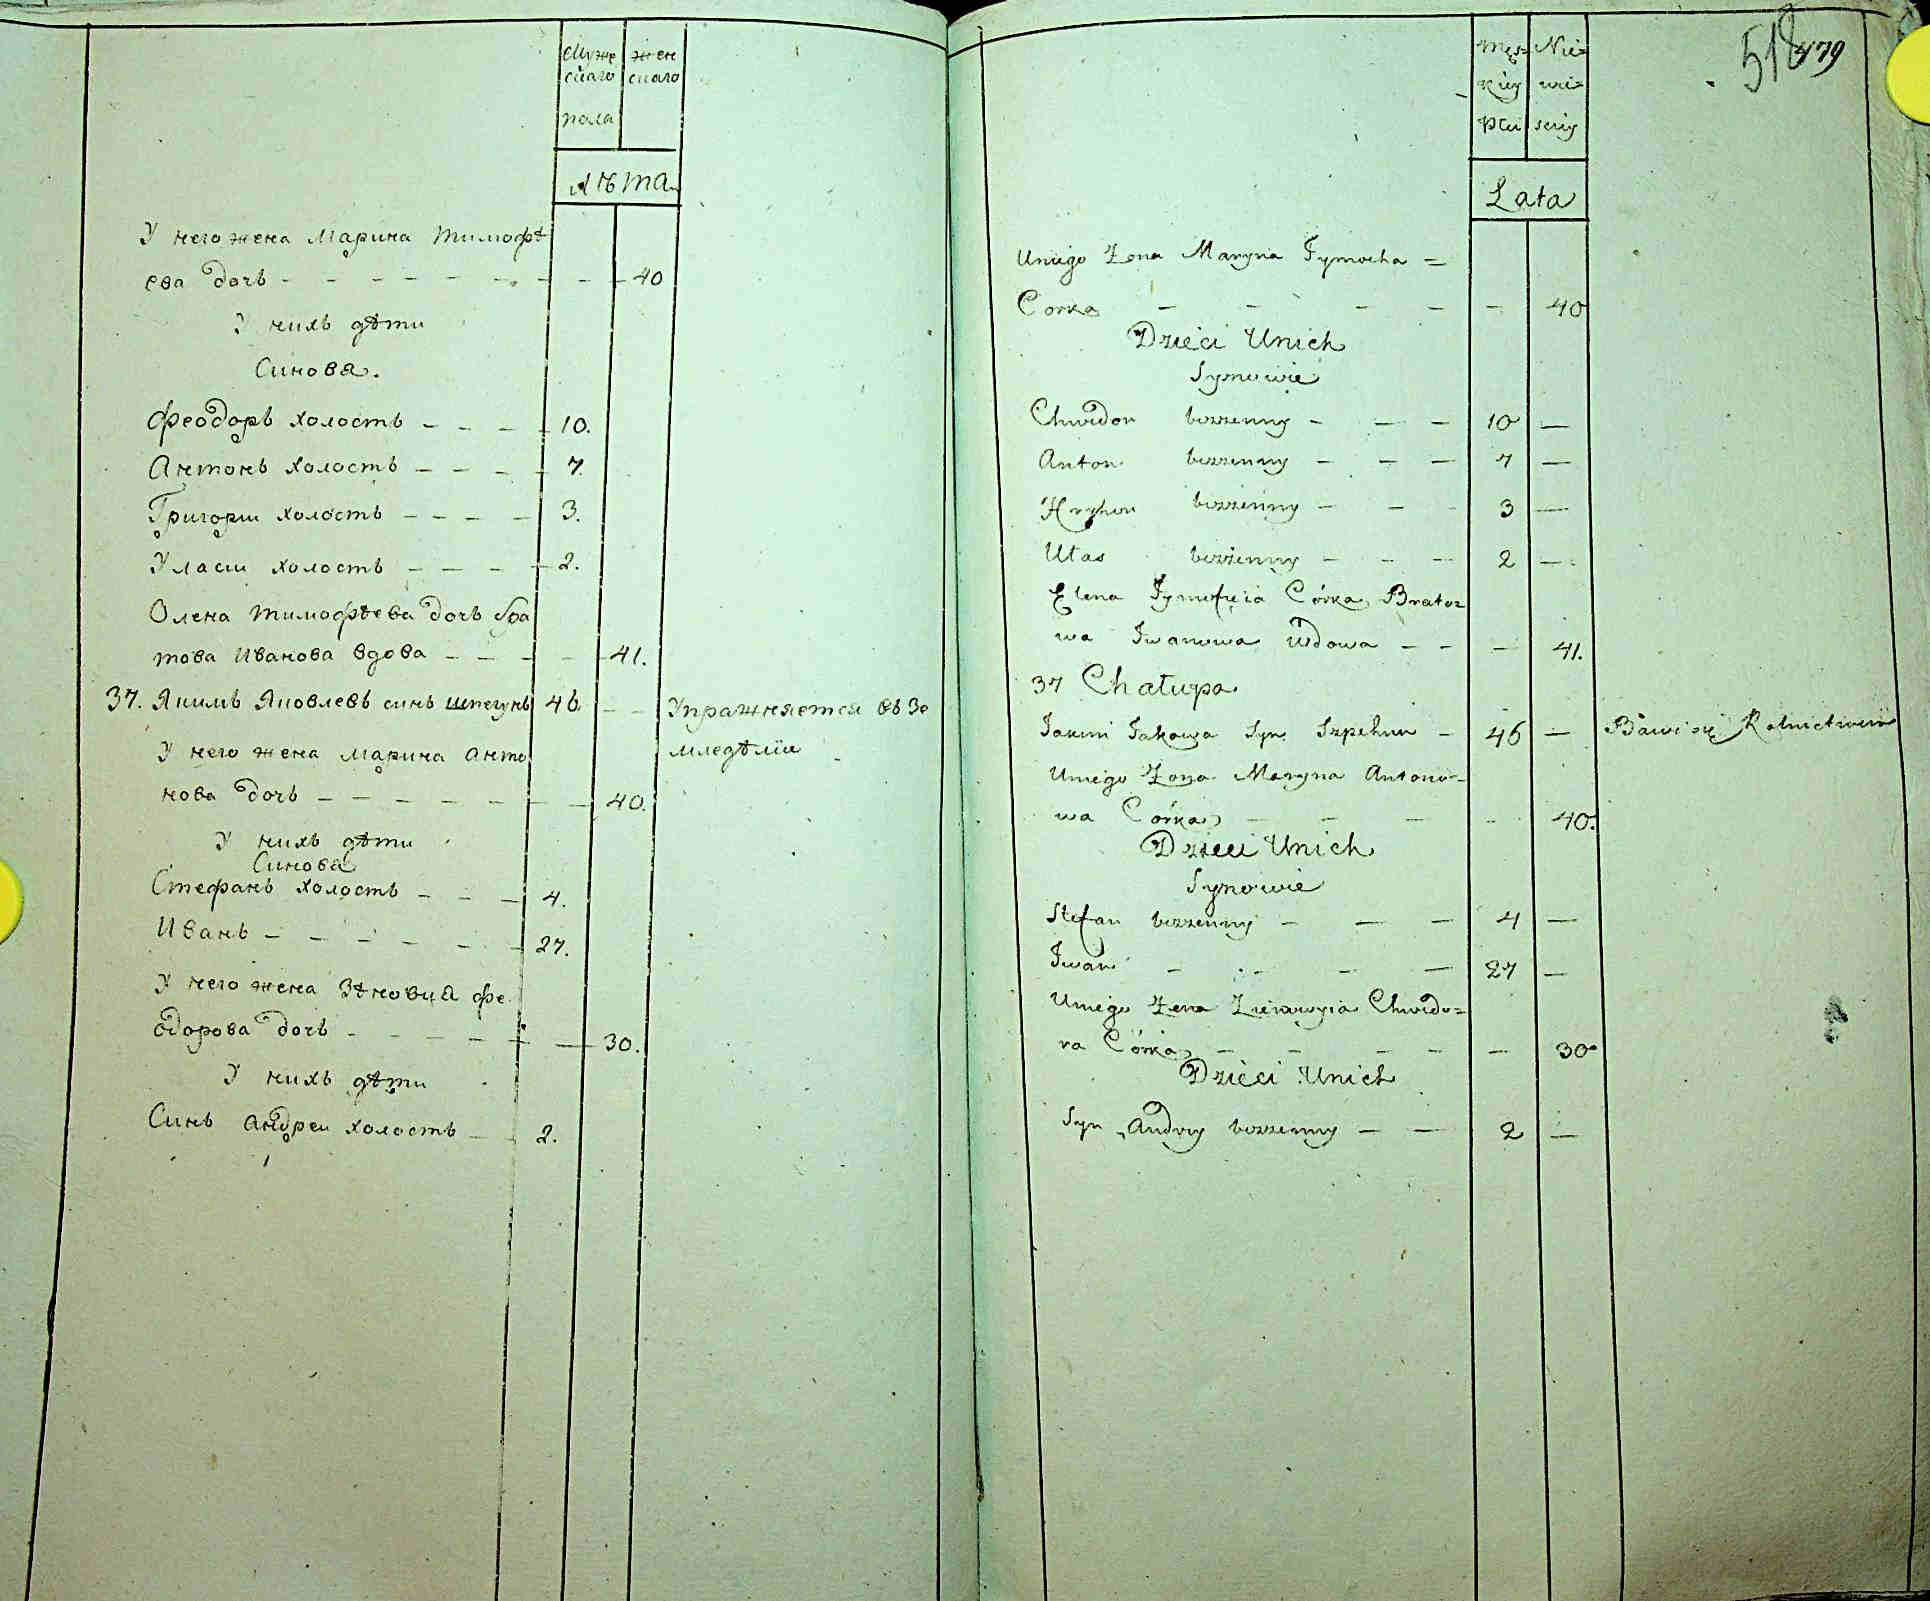 Муже
скаго
пола
жен
скаго
лѣта
У него жена Марина Тимофѣ
ева дочь - - - - - - - - 40
У нихъ дѣти
Синовя.
Феодоръ холостъ - - - - 10.
Антонъ холостъ - - - - 7.
Григории холостъ - - - - 3.
Уласи холостъ - - - - 2.
Олена Тимофѣева дочь бра
това Иванова вдова - - - - 41.
37. Якимъ Яковлевъ синъ шпегунъ 46 - - Упражняется въ Зе
мледѣлiи
У него жена Марина Анто
нова дочь - - - - - - - 40.
У нихъ дѣти
Синовя
Стефанъ холостъ - - - 4.
Иванъ - - - - - - - 27.
У него жена Зѣновия Фе
одорова дочь - - - - - - 30.
У нихъ дѣти
Синъ Андреи холостъ - - 2.
518 479
Męz=
kiey
Płci
Nie=
wie=
sciey
Lata
Uniego Żona Maryna Tymocha =
Corka - - - - - - 40
Dzieci Unich
Synowie
Chwedor bezzenny - - - 10 -
Anton bezzenny - - - 7 -
Hryhor bezzenny - - - 3 -
Ułas bezzenny - - - 2 -
Elena Tymofieia Córka Brato=
wa Iwanowa Wdowa - - - 41.
37 Chałupa
Jakim Jakowa Syn Szpehun - 46 - Bawi się Rolnictwem
Uniego Żona Maryna Antono-
wa Córka - - - - 40.
Dzieci Unich
Synowie
Stefan bezzenny - - - 4 -
Iwan - - - - 27 -
Uniego Żona Zienowyia Chwedo=
ra Córka - - - - - 30
Dzieci Unich
Syn Andrey bezzenny - - 2 -